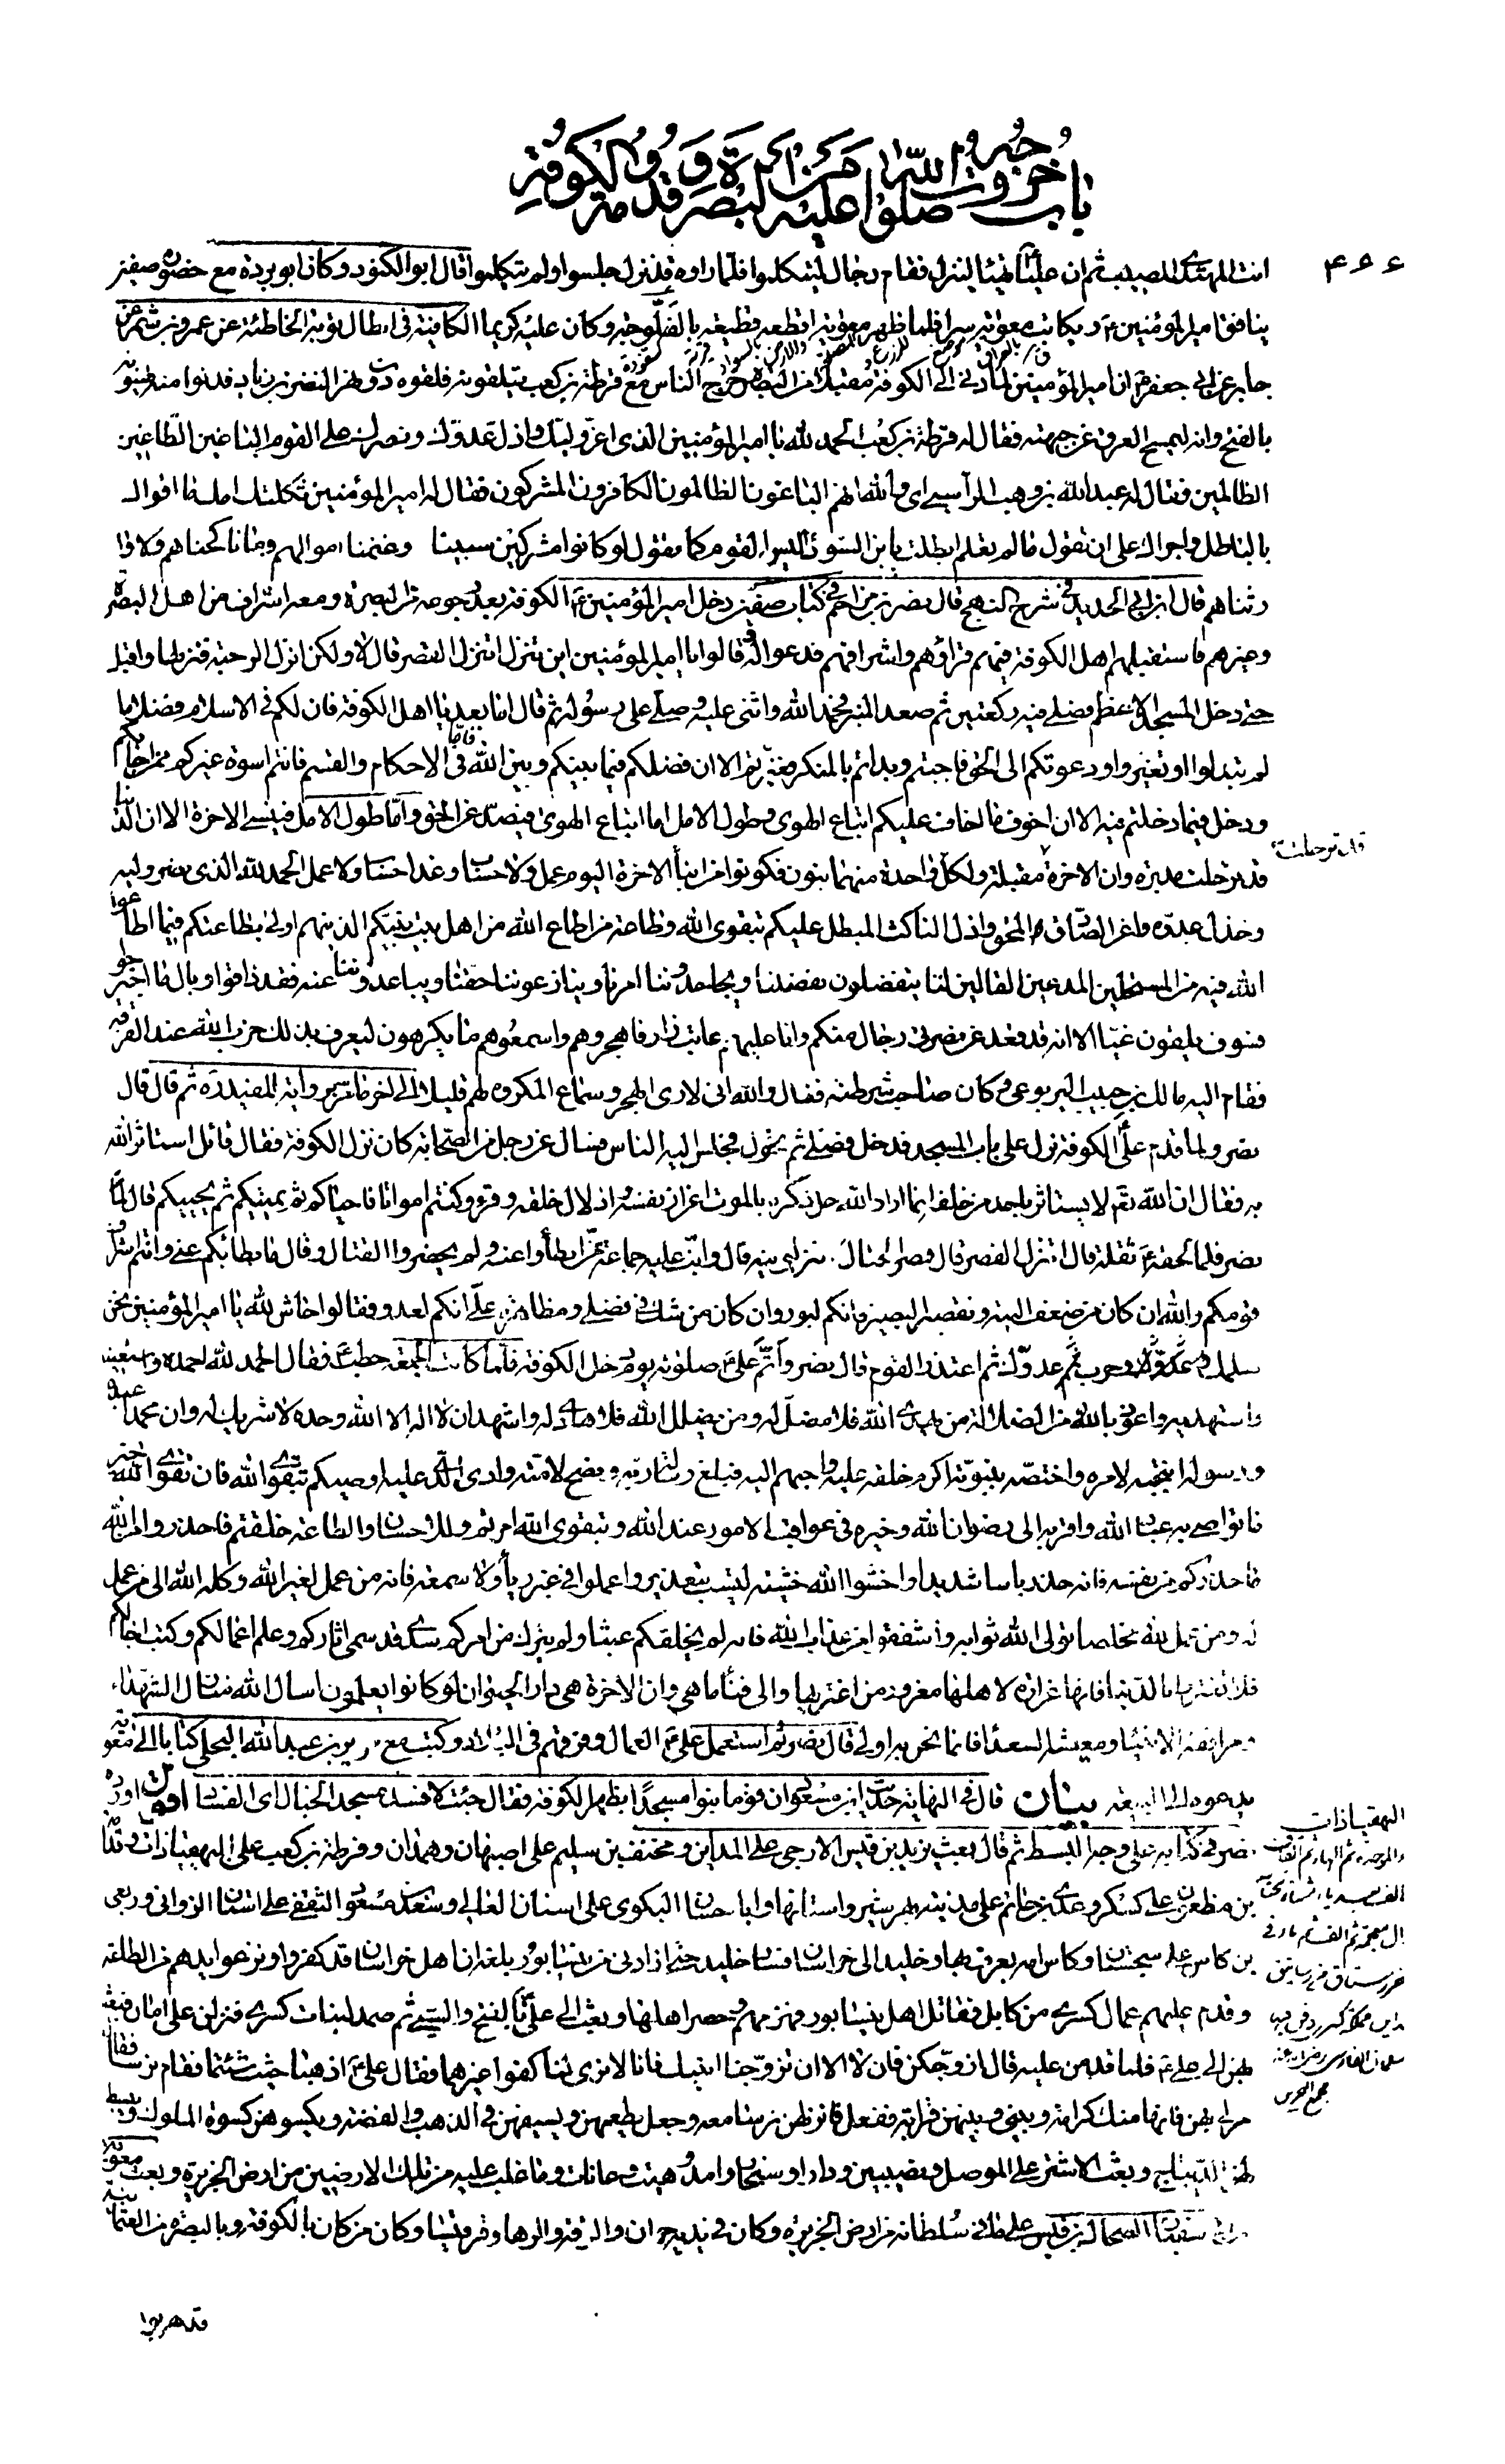 باب خروجه صلوات الله عليه من البصرة وقدومه الكوفة
۴۶۶
انت المهتدي المصيب ثم ان عليا تهيأ لينزل فقام رجال ليتكلموا فلما راوه قد نزل جلسوا ولم يتكلموا قال ابو الكنود وكان ابو بردة مع حضوره صفين
ينافق امير المؤمنين ع ويكاتب معوية سرا فلما ظهر معوية اقطعه قطيعة بالفلوجة وكان عليه كريما الكافية في ابطال توبة الخاطئة عن عمرو بن شمر عن
جابر عن ابي جعفر ع ان امير المؤمنين لما دنى الى الكوفة مقبلا من البصرة خرج الناس مع قرظة بن كعب يتلقونه فلقوه دون نهر النضر بن زياد فدنوا منه يهنونه
بالفتح وانه ليمسح العرق عن جبهته فقال له قرظة بن كعب الحمد لله يا امير المؤمنين الذي اعز وليك واذل عدوك ونصرك على القوم الباغين الطاغين
الظالمين فقال له عبد الله بن وهب الراسبي اي والله انهم الباغون الظالمون الكافرون المشركون فقال له امير المؤمنين ثكلتك امك ما اقواك
بالباطل واجراك على ان تقول ما لم تعلم ابطلت يا بن السوداء ليس القوم كما تقول لو كانوا مشركين سبينا وغنمنا اموالهم وما ناكحناهم ولا وا
رثناهم قال ابن ابي الحديد في شرح النهج قال نصر بن مزاحم في كتاب صفين دخل امير المؤمنين ع الكوفة بعد رجوعه من البصرة ومعه اشراف من اهل البصرة
وغيرهم فاستقبلهم اهل الكوفة فيهم قراؤهم واشرافهم فدعوا له وقالوا يا امير المؤمنين اين تنزل اتنزل القصر قال لا ولكن انزل الرحبة فنزلها واقبل
حتى دخل المسجد الاعظم فصلى فيه ركعتين ثم صعد المنبر فحمد الله واثنى عليه وصلى على رسوله ثم قال اما بعد يا اهل الكوفة فان لكم في الاسلام فضلا ما
لم تبدلوا او تغيروا ودعوتكم الى الحق فاجبتم وبداتم بالمنكر فغيرتم الا ان فضلكم فيما بينكم وبين الله فاما في الاحكام والقسم فانتم اسوة غيركم ممن اجابكم
ودخل فيما دخلتم فيه الا ان اخوف ما اخاف عليكم اتباع الهوى وطول الامل اما اتباع الهوى فيصد عن الحق واما طول الامل فينسي الاخرة الا ان الدنيا
قد ترحلت مدبرة وان الاخرة مقبلة ولكل واحدة منهما بنون فكونوا من ابناء الاخرة اليوم عمل ولا حساب وغدا حساب ولا عمل الحمد لله الذي نصر وليه
وخذل عدوه واعز الصادق المحق واذل الناكث المبطل عليكم بتقوى الله وطاعة من اطاع الله من اهل بيت نبيكم الذين هم اولى بطاعتكم فيما اطاعوا
الله فيه من المستحلين المدعين القالين لنا يتفضلون بفضلنا ويجاحدوننا امرنا وينازعوننا حقنا ويباعدوننا عنه فقد ذاقوا وبال ما اجترحوا
فسوف يلقون غيا الا انه قد قعد عن نصرتي رجال منكم وانا عليهم عاتب زار فاهجروهم واسمعوهم ما يكرهون ليعرف بذلك حزب الله عند الفرقة
فقام اليه مالك بن حبيب اليربوعي وكان صاحب شرطته فقال والله اني لارى الهجر وسماع المكروه لهم قليلا الى اخر ما مر برواية المفيد ره ثم قال قال
نصر ولما قدم علي ع الكوفة نزل على باب المسجد فدخل فصلى ثم تحول فجلس اليه الناس فسال عن رجل من الصحابة كان نزل الكوفة فقال قائل استاثر الله
به فقال ان الله تع لا يستاثر باحد من خلقه انما اراد الله جل ذكره بالموت اعزاز نفسه واذلال خلقه وقرء وكنتم امواتا فاحياكم ثم يميتكم ثم يحييكم قال
نصر فلما لحقه ع ثقله قال انزل القصر قال قصر الخبال لا تنزلني فيه قال وانب عليه جماعة ممن ابطاوا عنه ولم يحضروا القتال وقال ما بطا بكم عني وانتم اشراف
قومكم والله ان كان من ضعف النية وتقصير البصيرة انكم لبور وان كان من شك في فضلي ومظاهرة علي انكم لعدو فقالوا حاش لله يا امير المؤمنين نحن
سلمك وحرب عدوك ثم اعتذر القوم قال نصر واتم علي ع صلوته يوم دخل الكوفة فلما كانت الجمعة خطب فقال الحمد لله احمده واستعينه
واستهديه واعوذ بالله من الضلالة من يهدي الله فلا مضل له ومن يضلل الله فلا هادي له واشهد ان لا اله الا الله وحده لا شريك له وان محمدا عبده
ورسوله انتجبه لامره واختصه بنبوته اكرم خلقه عليه واحبهم اليه فبلغ رسالة ربه ونصح لامته وادى الذي عليه اوصيكم بتقوى الله فان تقوى الله خير
ما تواصى به عباد الله واقربه الى رضوان الله وخيره في عواقب الامور عند الله وبتقوى الله امرتم وللاحسان والطاعة خلقتم فاحذروا من الله
ما حذركم من نفسه فانه حذر باسا شديدا واخشوا الله خشية ليست بتعذير واعملوا في غير رياء ولا سمعة فانه من عمل لغير الله وكله الله الى من عمل
له ومن عمل لله مخلصا تولى الله ثوابه واشفقوا من عذاب الله فانه لم يخلقكم عبثا ولم يترك من امركم سدى قد سمى اثاركم وعلم اعمالكم وكتب اجالكم
فلا تغتروا بالدنيا فانها غرارة لاهلها مغرور من اغتر بها والى فناء ما هي وان الاخرة هي دار الحيوان لو كانوا يعلمون اسال الله منازل الشهداء
ومرافقة الانبياء ومعيشة السعداء فانما نحن به وله قال نصر ثم استعمل علي ع العمال وفرقهم في البلاد وكتب مع جرير بن عبد الله البجلي كتابا الى معوية
يدعوه الى البيعة بيان قال في النهاية في حديث ابن مسعود ان قوما بنوا مسجدا بظهر الكوفة فقال جئت لاكسر مسجد الخبال اي الفساد اقول اورده
نصر في كتابه على وجه البسط ثم قال بعث يزيد بن قيس الارحبي على المداين ومخنف بن سليم على اصبهان وهمدان وقرظة بن كعب على البهقباذات وقدامة
بن مظعون على كسكر وعدي بن حاتم على مدينة بهرسير واستانها وابا حسان البكري على استان العالي وسعد بن مسعود الثقفي على استان الزوابي وربعي
بن كاس على سجستان وكاس امه يعرف بها وخليدا الى خراسان فسار خليد حتى اذا دنى من نيشابور بلغه ان اهل خراسان قد كفروا ونزعوا يدهم من الطاعة
وقدم عليهم عمال كسرى من كابل فقاتل اهل نيشابور فهزمهم وحصر اهلها وبعث الى علي ع بالفتح والسبي ثم صمد لبنات كسرى فنزلن على امان فبعث
بهن الى علي ع فلما قدمن عليه قال ازوجكن قلن لا الا ان تزوجنا ابنيك فانا لا نرى لنا كفوا غيرهما فقال علي ع اذهبا حيث شئتما فقام نرسا فقال
مر لي بهن فانها منك كرامة وبيني وبينهن قرابة ففعل فانزلهن نرسا معه وجعل يطعمهن ويسقيهن في الذهب والفضة ويكسوهن كسوة الملوك ويبسط
لهن الديباج وبعث الاشتر على الموصل ونصيبين ودارا وسنجار وامد وهيت وعانات وما غلب عليه من تلك الارضين من ارض الجزيرة وبعث معوية
بن ابي سفيان الضحاك بن قيس على ما في سلطانه من ارض الجزيرة وكان في يديه حران والرقة والرها وقرقيسا وكان من كان بالكوفة وبالبصرة من العثمانية
قد هربوا
قد ترحلت
البهقباذات
مجمع البحرين